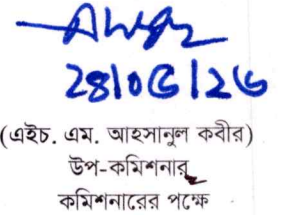 ২৪/০৫/২৬
(এইচ. এম. আহসানুল কবীর)
উপ-কমিশনার
কমিশনারের পক্ষে